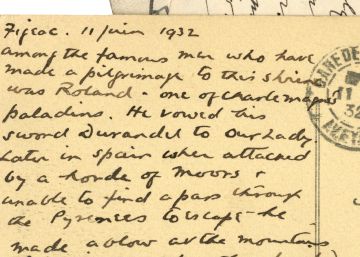 Figeac. 11 juin 1932
among the famous men who have
made a pilgrimage to this shrine
was Roland - one of Charlemagne's
paladins. He vowed his
sword Durandel to Our Lady.
Later in Spain when attacked
by a horde of Moors &
unable to find a pass through
the Pyrenees to escape - he
made a blow at the mountains